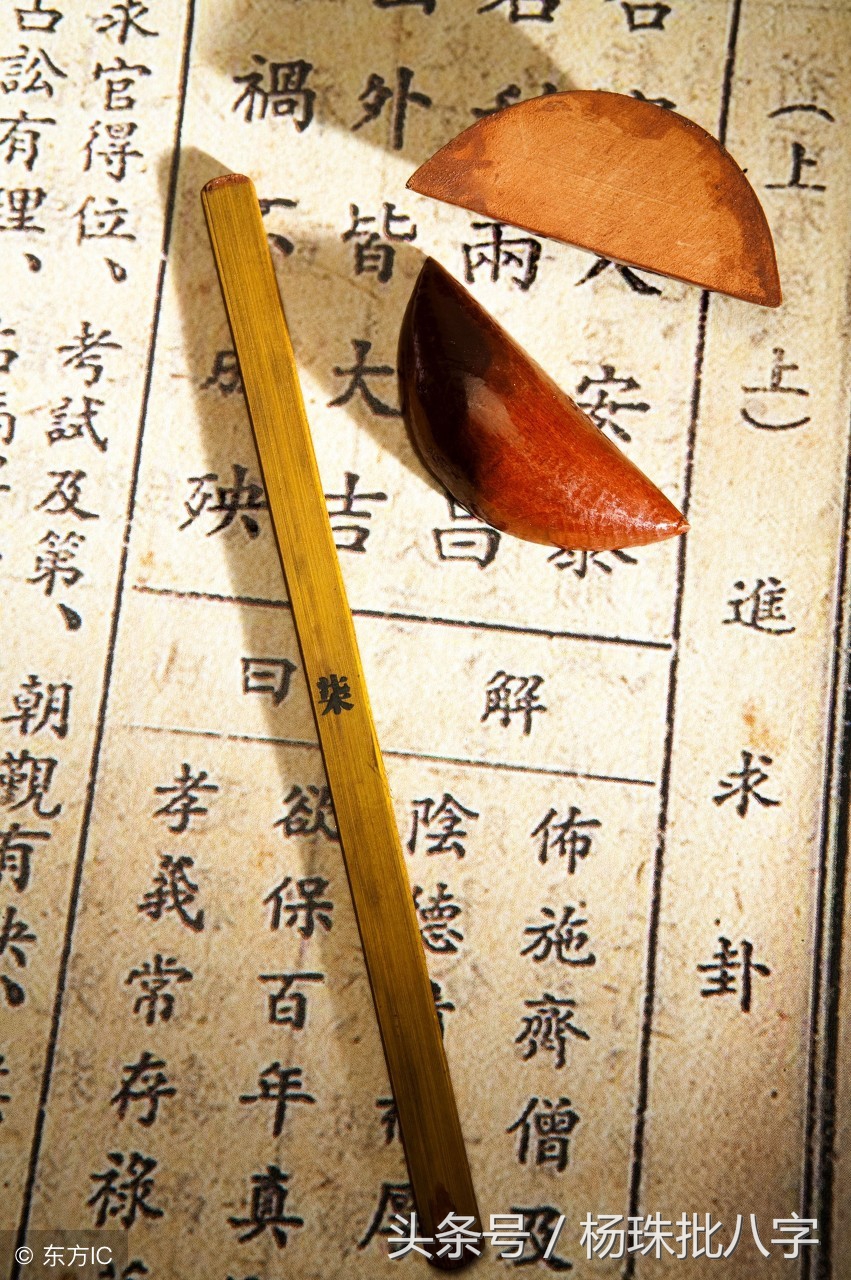 （上上）進求卦
安泰
兩昌
外皆大吉
禍不成殃
解曰
佈施齊僧及
陰德
欲保百年真
孝義常存祿
求官得位、考試及第、朝觀有
訟有理、
柒
头条号 / 杨珠批八字
© 东方IC